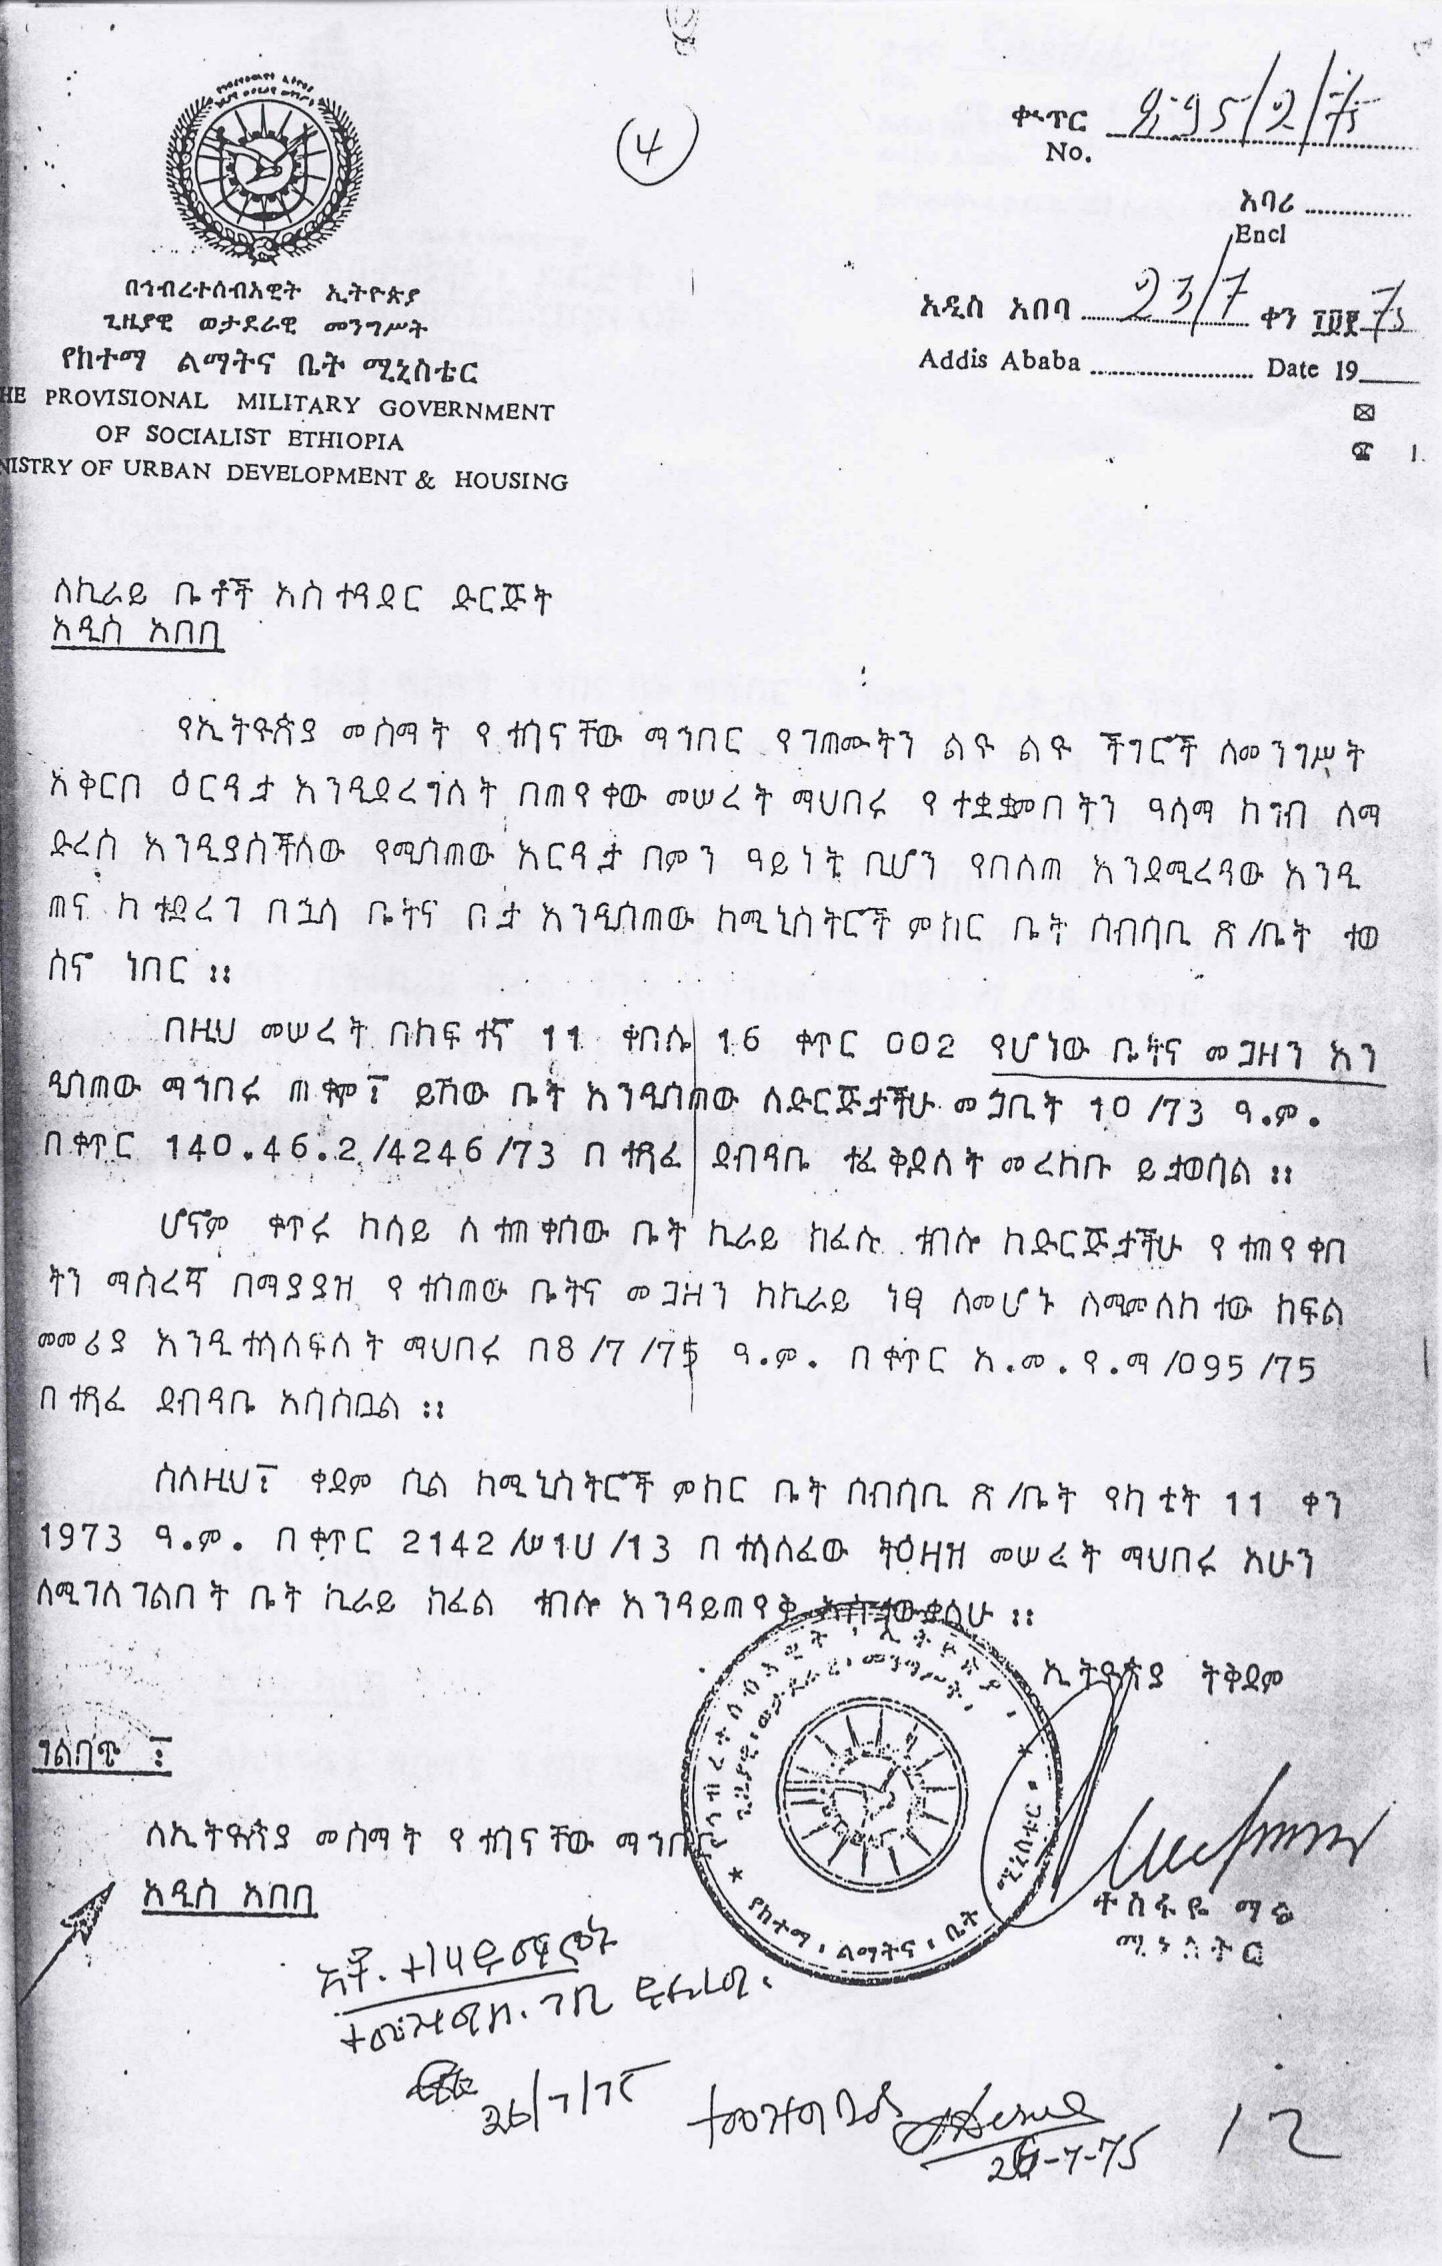 4
ቍጥር 295/2/75
No.
አባሪ
Encl
በኅብረተሰብአዊት ኢትዮጵያ
ጊዜያዊ ወታደራዊ መንግሥት
የከተማ ልማትና ቤት ሚኒስቴር
HE PROVISIONAL MILITARY GOVERNMENT
OF SOCIALIST ETHIOPIA
NISTRY OF URBAN DEVELOPMENT & HOUSING
አዲስ አበባ 23/7 ቀን ፲፱፻75
Addis Ababa Date 19
ለኪራይ ቤቶች አስተዳደር ድርጅት
አዲስ አበባ
የኢትዮጵያ መስማት የተሳናቸው ማኅበር የገጠሙትን ልዩ ልዩ ችግሮች ለመንግሥት
አቅርቦ ዕርዳታ እንዲደረግለት በጠየቀው መሠረት ማህበሩ የተቋቋመበትን ዓላማ ከግብ ለማ
ድረስ እንዲያስችለው የሚሰጠው እርዳታ በምን ዓይነት ቢሆን የበለጠ እንደሚረዳው እንዲ
ጠና ከተደረገ በኋላ ቤትና ቦታ እንዲሰጠው ከሚኒስትሮች ምክር ቤት ሰብሳቢ ጽ/ቤት ተወ
ስኖ ነበር ።
በዚህ መሠረት በከፍተኛ 11 ቀበሌ 16 ቁጥር 002 የሆነው ቤትና መጋዘን እን
ዲሰጠው ማኅበሩ ጠቁሞ፤ ይኸው ቤት እንዲሰጠው ለድርጅታችሁ መጋቢት 10/73 ዓ.ም.
በቁጥር 140.46.2/4246/73 በተጻፈ ደብዳቤ ተፈቅዶለት መረከቡ ይታወሳል ።
ሆኖም ቁጥሩ ከላይ ለተጠቀሰው ቤት ኪራይ ክፈሉ ተብሎ ከድርጅታችሁ የተጠየቀበ
ትን ማስረጃ በማያያዝ የተሰጠው ቤትና መጋዘን ከኪራይ ነፃ ስለመሆኑ ለሚመለከተው ክፍል
መመሪያ እንዲተላለፍለት ማህበሩ በ8/7/75 ዓ.ም. በቁጥር አ.መ.የ.ማ/095/75
በተጻፈ ደብዳቤ አሳስቧል ።
ስለዚህ፤ ቀደም ሲል ከሚኒስትሮች ምክር ቤት ሰብሳቢ ጽ/ቤት የካቲት 11 ቀን
1973 ዓ.ም. በቁጥር 2142/ሠ1ሀ/13 በተላለፈው ትዕዛዝ መሠረት ማህበሩ አሁን
ለሚገለገልበት ቤት ኪራይ ክፈል ተብሎ እንዳይጠየቅ አስታውቃለሁ ።
ኢትዮጵያ ትቅደም
ግልባጭ ፤
ለኢትዮጵያ መስማት የተሳናቸው ማኅበር
አዲስ አበባ
በኅብረተሰብአዊት ኢትዮጵያ
ጊዜያዊ ወታደራዊ መንግሥት
የከተማ ልማትና ቤት ሚኒስቴር
ተስፋዬ ማሩ
ሚኒስትር
26/7/75
ተመዝግቧል
26-7-75
12